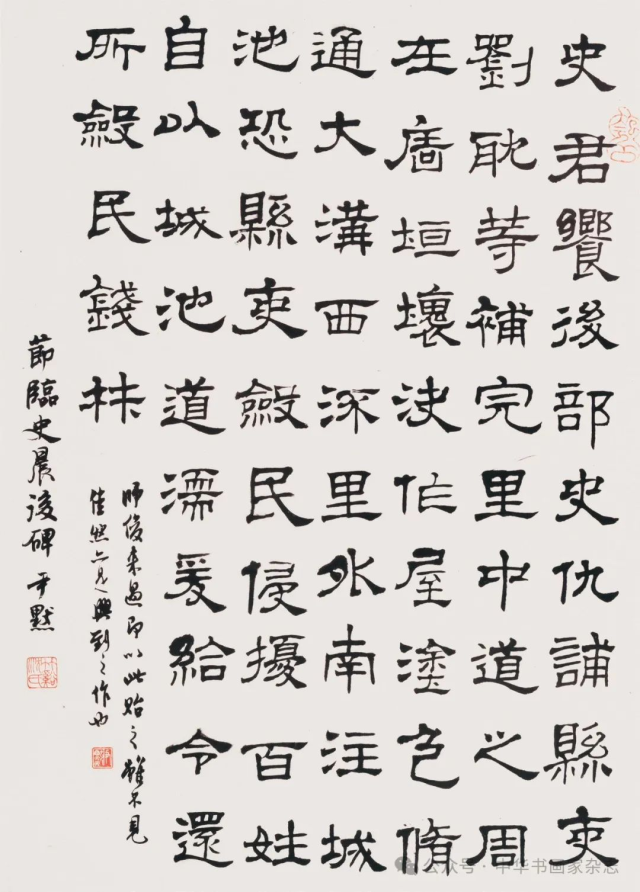 史君饗後部史仇誧縣吏
劉耽等補完里中道之周
在廧垣壞決作屋塗色脩
通大溝西流里外南注城
池恐縣吏斂民侵擾百姓
自以城池道濡麥給令還
所斂民錢材
節臨史晨後碑 尹默
師俊來過即以此貽之雖不見
佳然亦見興到之作也
公众号·中华书画家杂志